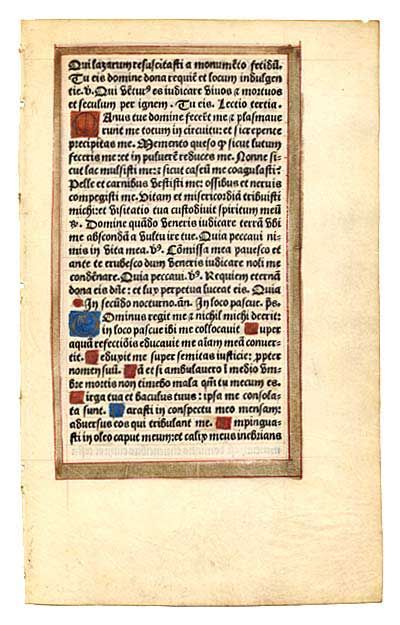 Qui lazarum resuscitasti a monumēto fetidū.
Tu eis domine dona requiē et locum indulgen
tie. v̄. Qui vētur᷒ es iudicare viuos ⁊ mortuos
et seculum per ignem. Tu eis. Lectio tertia.
Manus tue domine fecerūt me ⁊ plasmaue
runt me totum in circuitu: et sic repente
precipitas me. Memento queso ꝙ sicut lutum
feceris me: et in puluerē reduces me. Nonne si-
cut lac mulsisti me: ⁊ sicut caseū me coagulasti?
Pelle et carnibus vestisti me: ossibus et neruis
compegisti me. Vitam et misericordiā tribuisti
michi: et visitatio tua custodiuit spiritum meū
Domine quādo veneris iudicare terrā vbi
me abscondā a vultu ire tue. Quia peccaui ni-
mis in vita mea. v̄. Cōmissa mea pauesco et
ante te erubesco dum veneris iudicare noli me
condēnare. Quia peccaui. v̄. Requiem eternā
dona eis dn̄e: et lux perpetua luceat eis. Quia
In secūdo nocturno. an̄. In loco pascue. ps̄.
Dominus regit me ⁊ nichil michi deerit:
in loco pascue ibi me collocauit Super
aquā refectiōis educauit me aīam meā conuer-
tit. Deduxit me super semitas iusticie: ꝓpter
nomen suū. Nā et si ambulauero ī medio vm-
bre mortis non timebo mala qm̄ tu mecum es.
Virga tua et baculus tuus: ipsa me consola-
ta sunt. Parasti in conspectu meo mensam:
aduersus eos qui tribulant me. Impingua-
sti in oleo caput meum: et calix meus inebrians